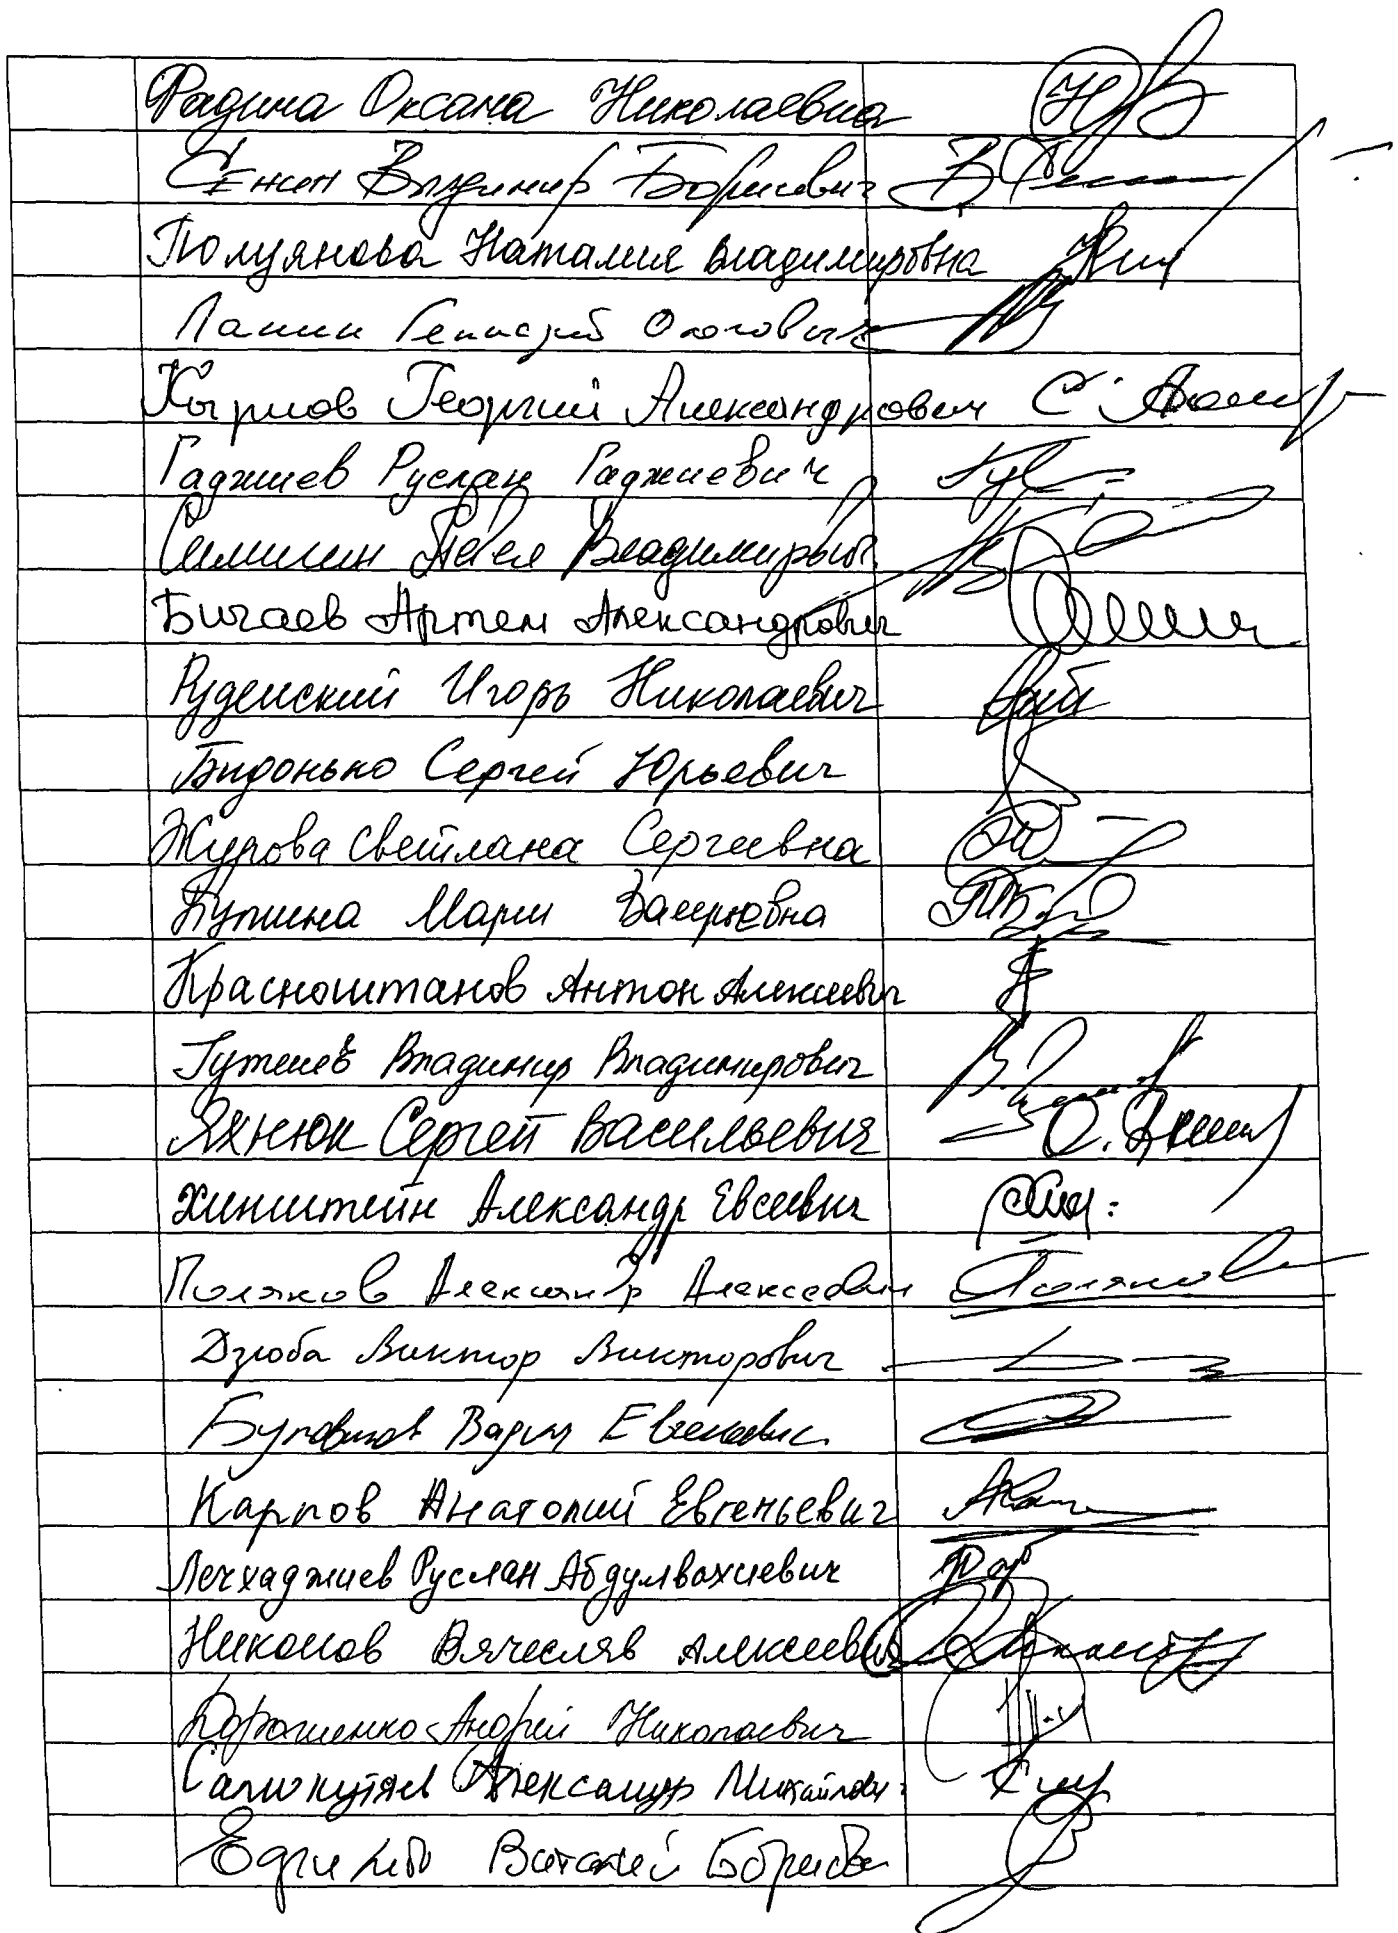 Фадина Оксана Николаевна
Сенин Владимир Борисович
Полуянова Наталия Владимировна
Панин Геннадий Олегович
Георгий Александрович
Гаджиев Руслан Гаджиевич
Симигин Павел Владимирович
Бичаев Артем Александрович
Руденский Игорь Николаевич
Бидонько Сергей Юрьевич
Журова Светлана Сергеевна
Бутина Мария Валерьевна
Красноштанов Антон Алексеевич
Гутенев Владимир Владимирович
Яхнюк Сергей Васильевич
Хинштейн Александр Евсеевич
Поляков Александр Алексеевич Поляков
Дзюба Виктор Викторович
Булавинов Вадим Евгеньевич
Карпов Анатолий Евгеньевич
Лечхаджиев Руслан Абдулвахиевич
Никонов Вячеслав Алексеевич
Дорошенко Андрей Николаевич
Самокутяев Александр Михайлович
Борисович